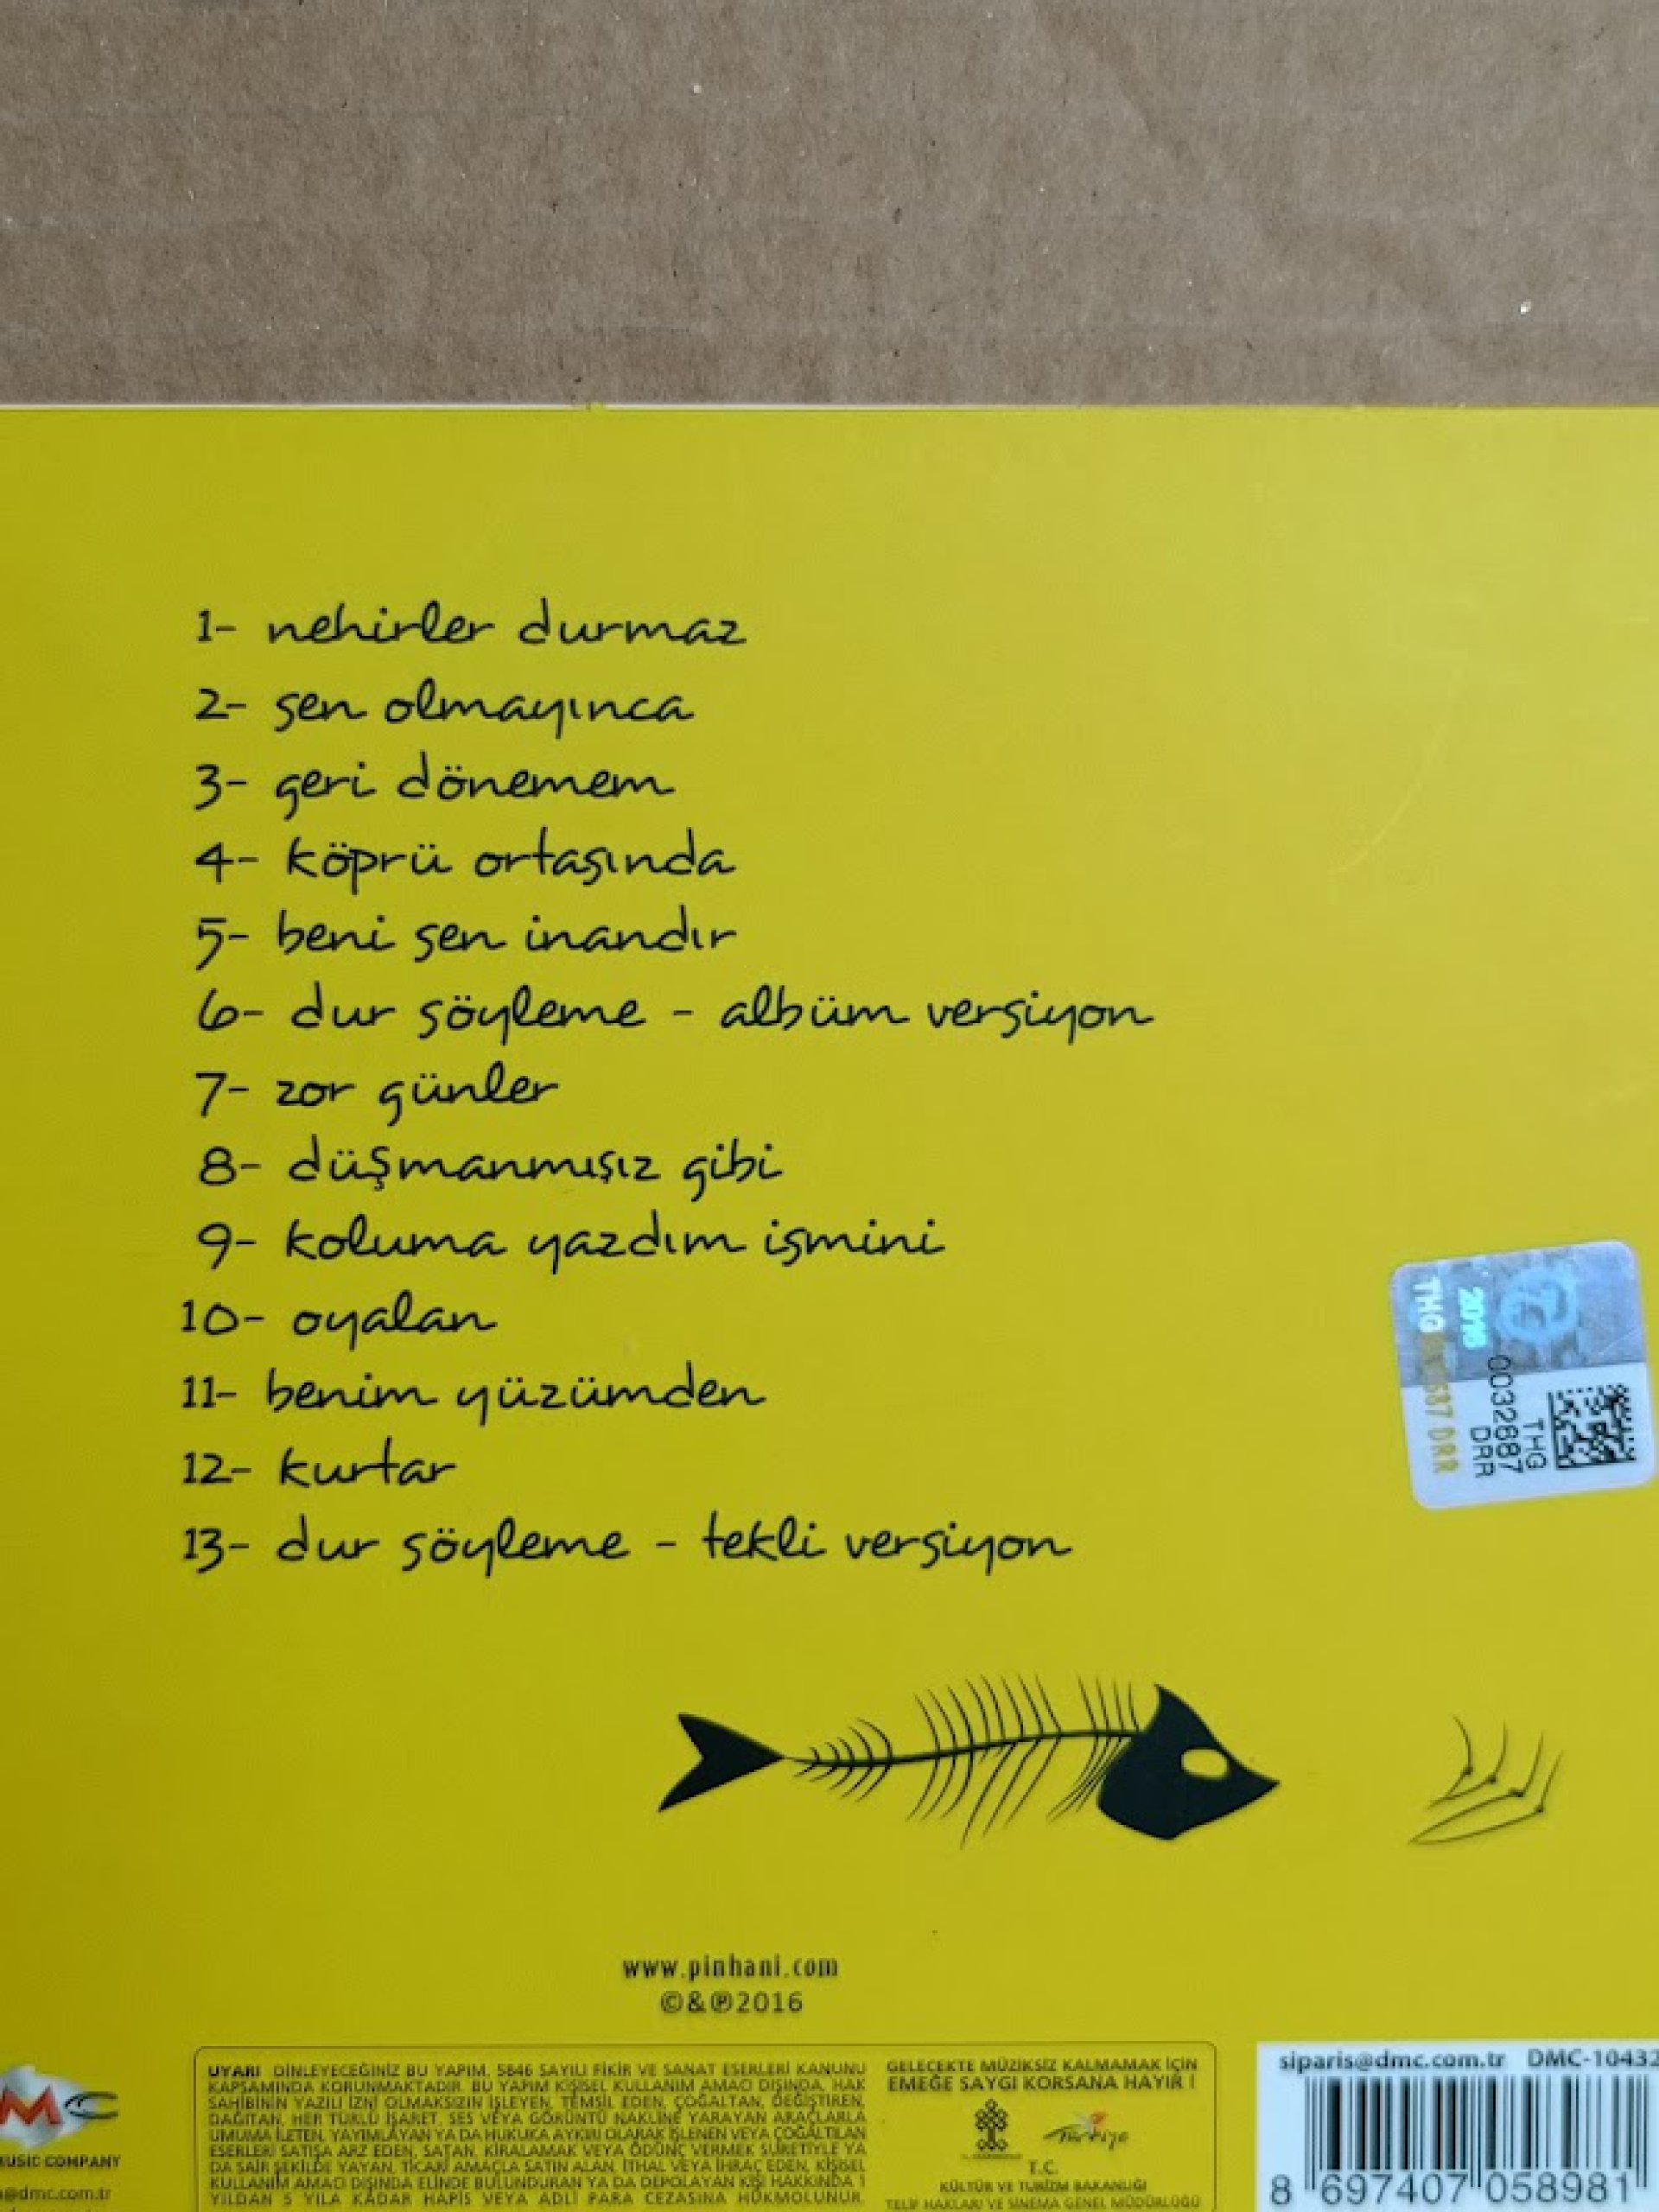 1- nehirler durmaz
2- sen olmayınca
3- geri dönemem
4- köprü ortasında
5- beni sen inandır
6- dur söyleme - albüm versiyon
7- zor günler
8- düşmanmışız gibi
9- koluma yazdım ismini
10- oyalan
11- benim yüzümden
12- kurtar
13- dur söyleme - tekli versiyon
2016
THG
0032687
THG
DRR
www.pinhani.com
©&℗2016
MC
MUSIC COMPANY
@dmc.com.tr
UYARI DİNLEYECEĞİNİZ BU YAPIM, 5846 SAYILI FİKİR VE SANAT ESERLERİ KANUNU
KAPSAMINDA KORUNMAKTADIR. BU YAPIM KİŞİSEL KULLANIM AMACI DIŞINDA, HAK
SAHİBİNİN YAZILI İZNİ OLMAKSIZIN İŞLEYEN, TEMSİL EDEN, ÇOĞALTAN, DEĞİŞTİREN,
DAĞITAN, HER TÜRLÜ İŞARET, SES VEYA GÖRÜNTÜ NAKLİNE YARAYAN ARAÇLARLA
UMUMA İLETEN, YAYIMLAYAN YA DA HUKUKA AYKIRI OLARAK İŞLENEN VEYA ÇOĞALTILAN
ESERLERİ SATIŞA ARZ EDEN, SATAN, KİRALAMAK VEYA ÖDÜNÇ VERMEK SURETİYLE YA
DA SAİR ŞEKİLDE YAYAN, TİCARİ AMAÇLA SATIN ALAN, İTHAL VEYA İHRAÇ EDEN, KİŞİSEL
KULLANIM AMACI DIŞINDA ELİNDE BULUNDURAN YA DA DEPOLAYAN KİŞİ HAKKINDA 1
YILDAN 5 YILA KADAR HAPİS VEYA ADLİ PARA CEZASINA HÜKMOLUNUR.
GELECEKTE MÜZİKSİZ KALMAMAK İÇİN
EMEĞE SAYGI KORSANA HAYIR !
Türkiye
T.C.
KÜLTÜR VE TURİZM BAKANLIĞI
TELİF HAKLARI VE SİNEMA GENEL MÜDÜRLÜĞÜ
siparis@dmc.com.tr DMC-10432
8 697407 058981